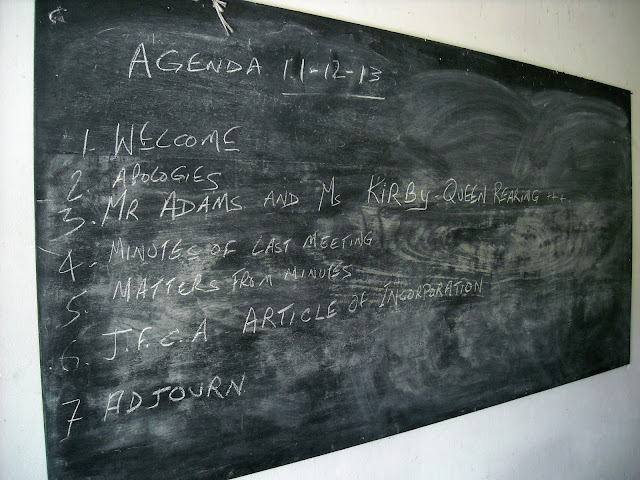 AGENDA 11-12-13
1. WELCOME
2. APOLOGIES
3. MR ADAMS AND Ms KIRBY - QUEEN REARING +++
4- MINUTES OF LAST MEETING
5. MATTERS FROM MINUTES
6. J.F.C.A ARTICLE OF INCORPORATION
7 ADJOURN